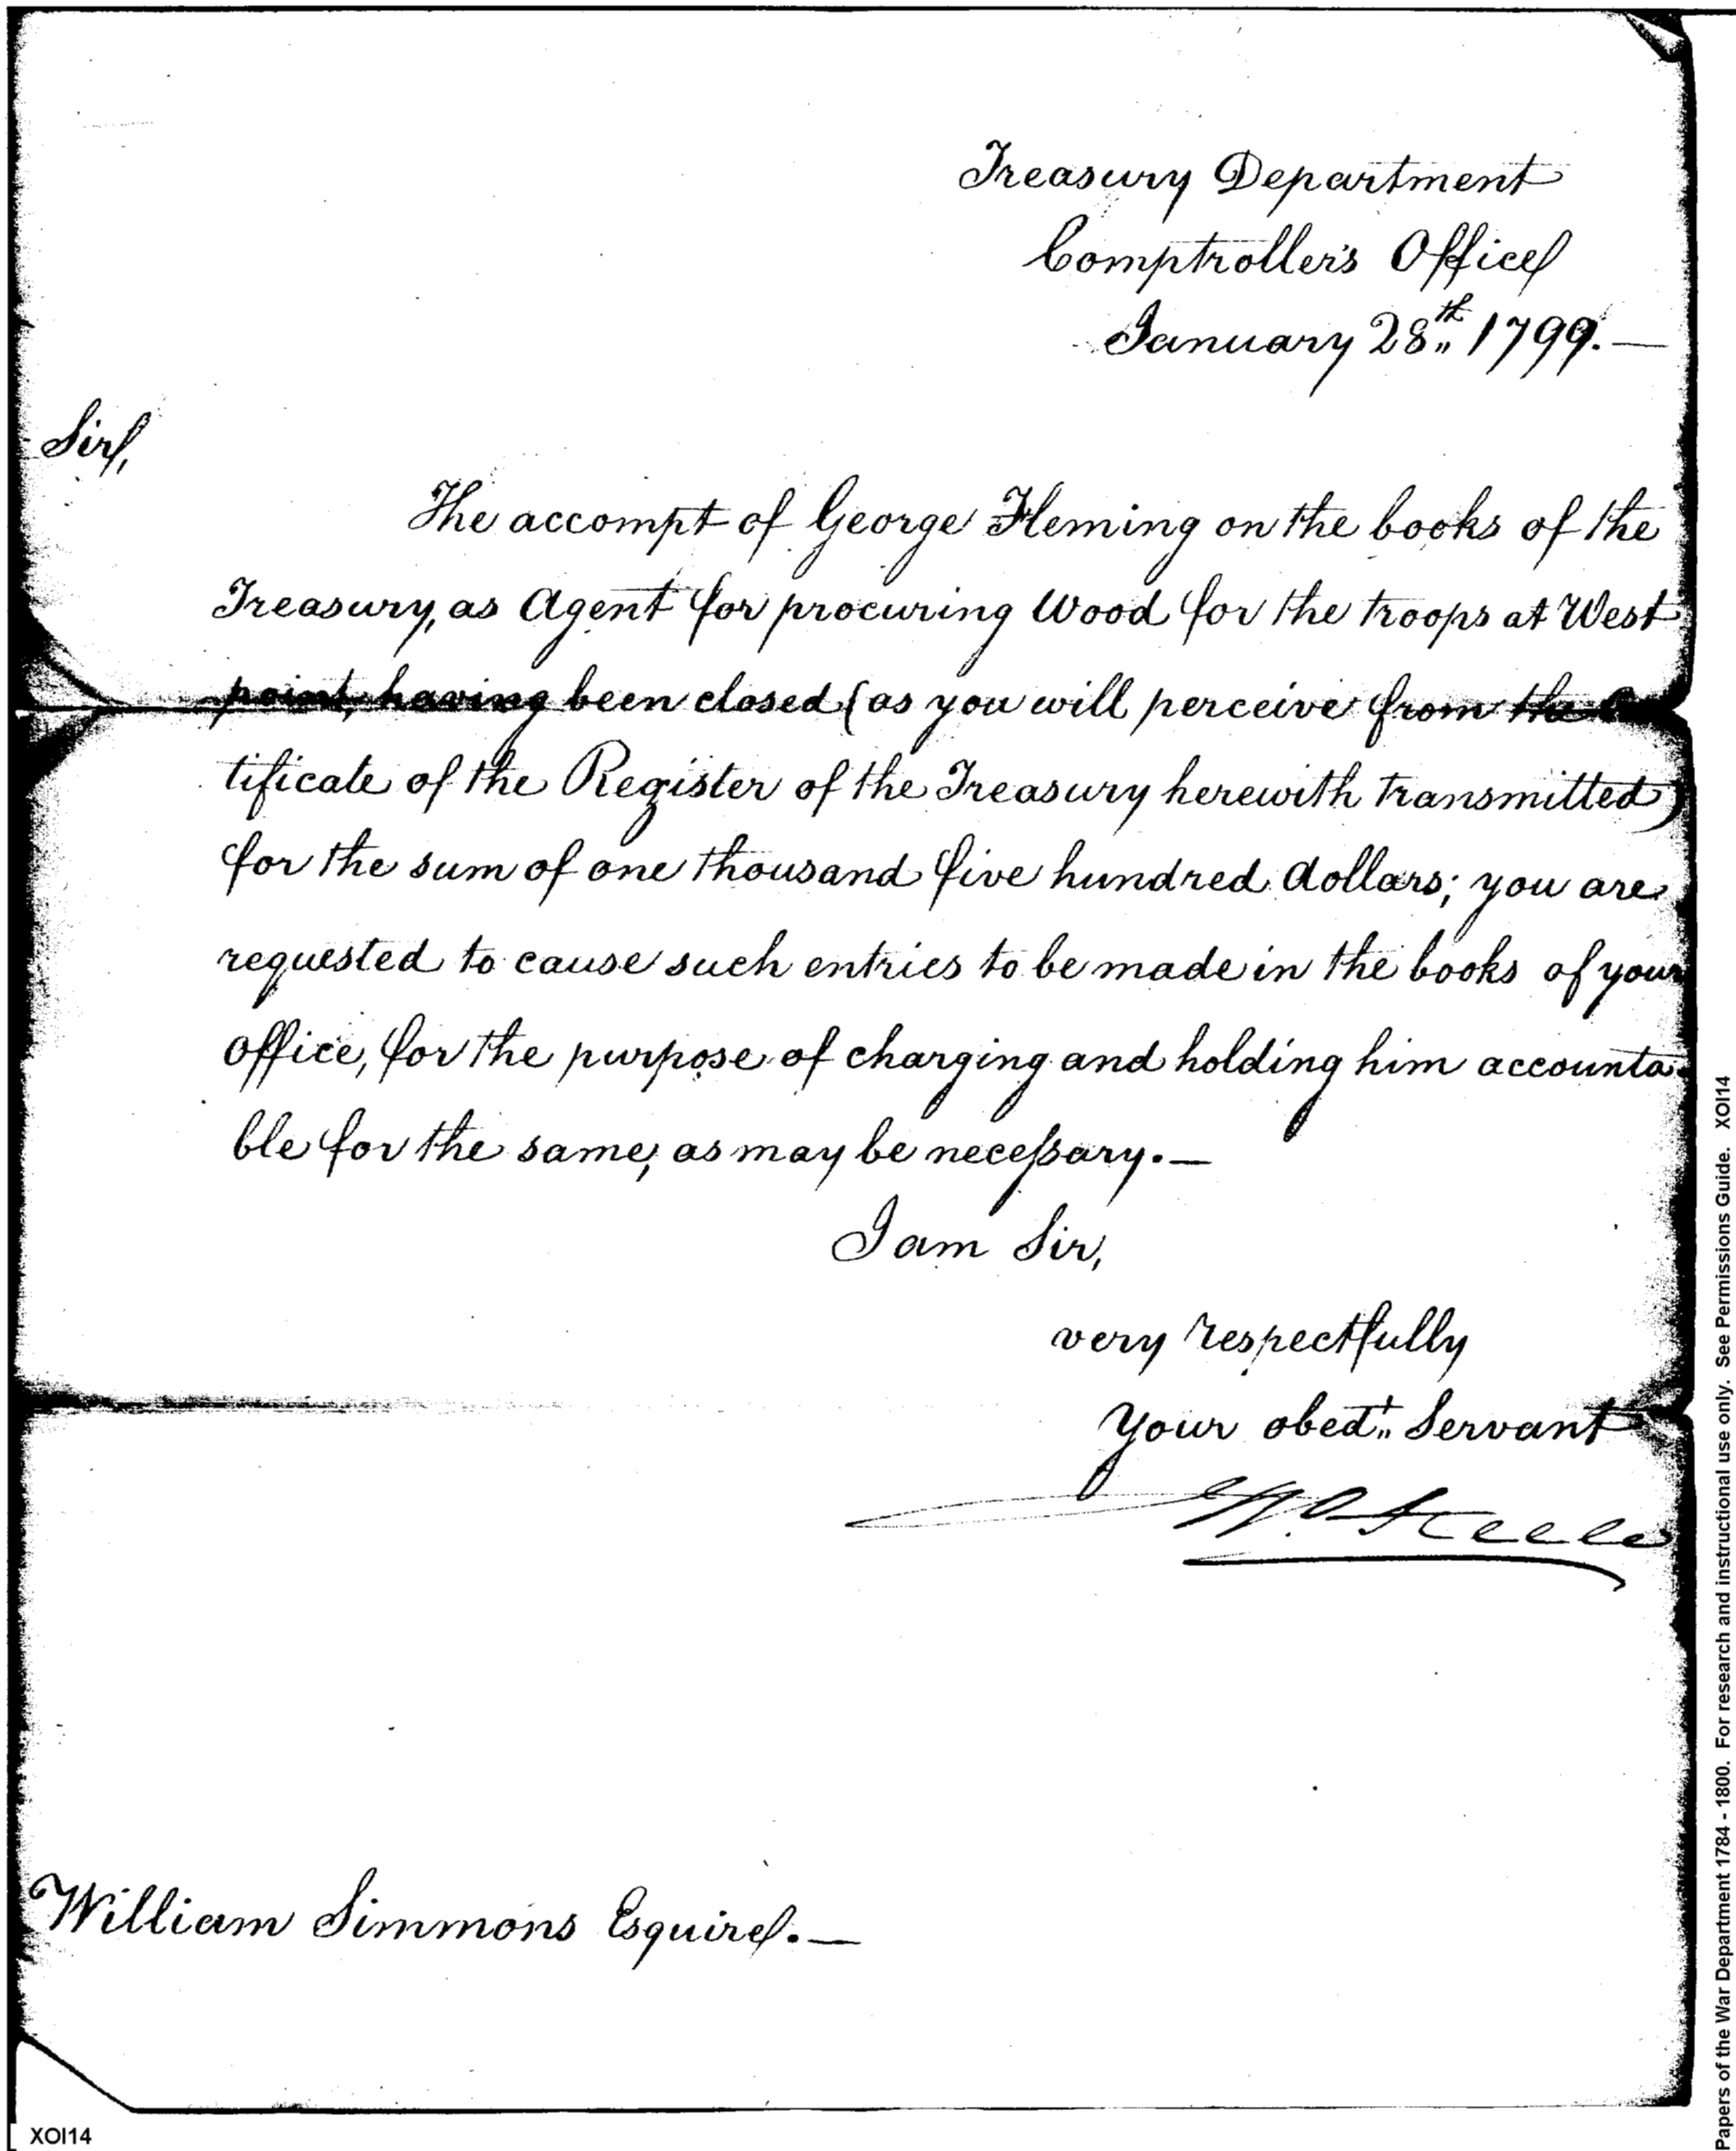 Treasury Department
Comptroller's Office
January 28th 1799.—
Sir,
The accompt of George Fleming on the books of the
Treasury, as Agent for procuring Wood for the troops at West
point, having been closed (as you will perceive from the Cer
tificate of the Register of the Treasury herewith transmitted)
for the sum of one thousand five hundred dollars; you are
requested to cause such entries to be made in the books of your
office, for the purpose of charging and holding him accounta-
ble for the same, as may be necessary.—
I am Sir,
very respectfully
Your obedt. Servant
Jno. Steele
William Simmons Esquire.—
XOI14
Papers of the War Department 1784 - 1800. For research and instructional use only. See Permissions Guide. XOI14